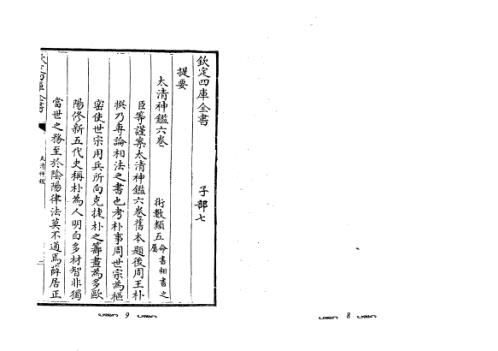 欽定四庫全書　　子部七
提要　　術數類五命書相書之屬
太清神鑑六卷
臣等謹案太清神鑑六卷舊本題後周王朴
撰乃專論相法之書也考朴事周世宗為樞
密使世宗用兵所向克捷朴之籌畫為多歐
陽修新五代史稱朴為人明白多材智非獨
當世之務至於陰陽律法莫不通焉薛居正
欽定四庫全書
太清神鑑
9
8